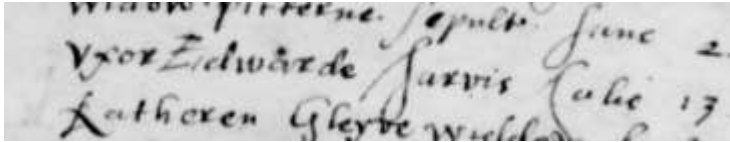 widow pitterne. sepult. June 2
vxor Edwarde Jarvis Julie 13
Katheren Gleyve widdow